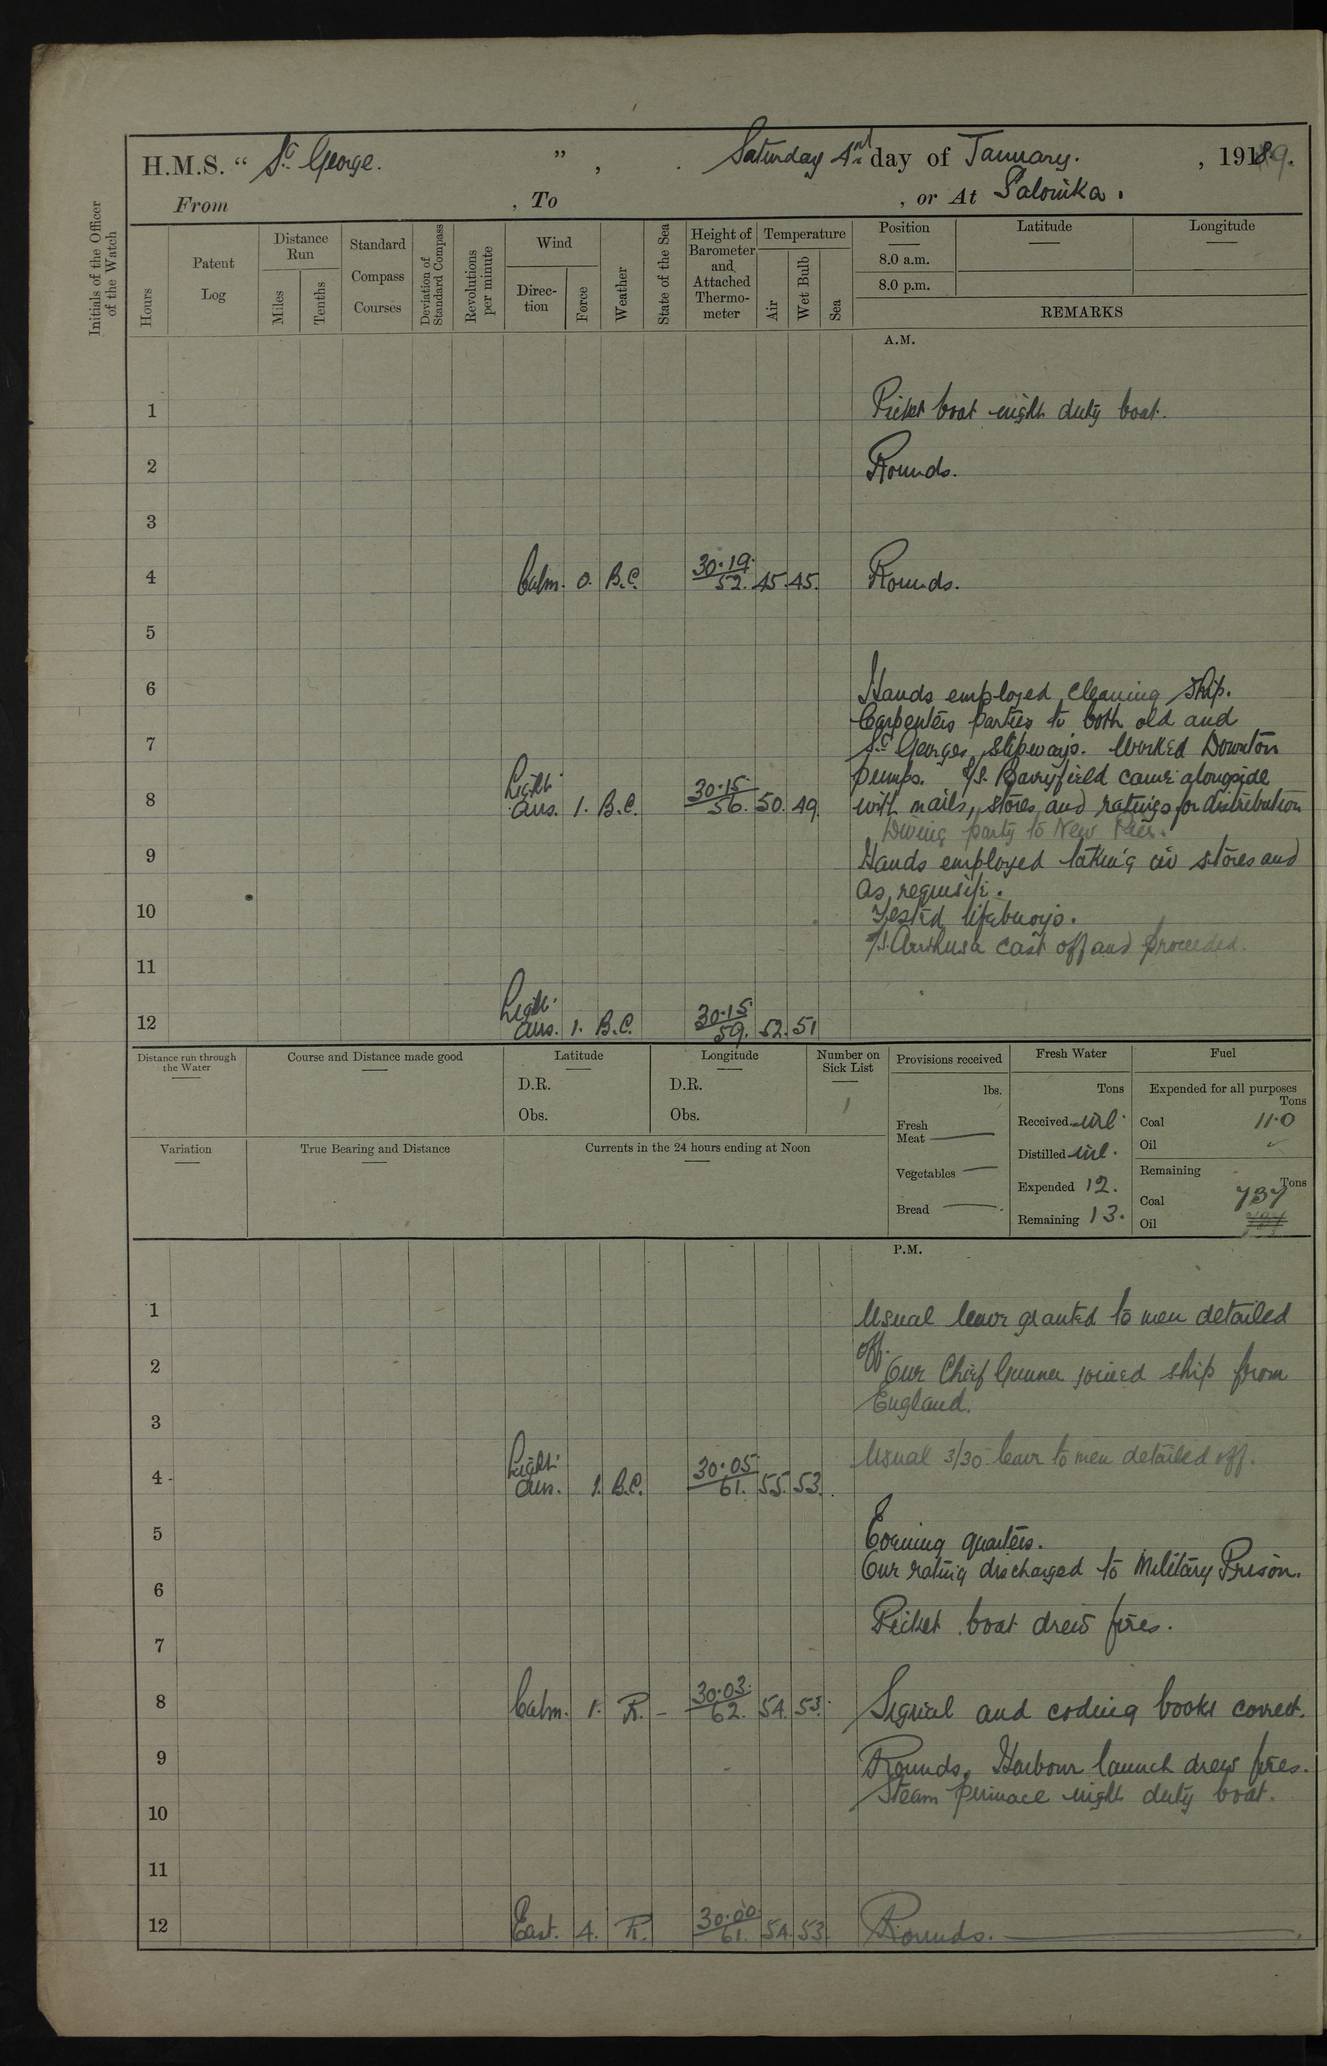 H.M.S. “ St George. ” , Saturday 4 day of January. , 1919.
From , To , or At Salonika.
Initials of the Officer of the Watch
Hours
Patent Log
Distance Run
Miles
Tenths
Standard Compass Courses
Deviation of Standard Compass
Revolutions per minute
Wind
Direction
Force
Weather
State of the Sea
Height of Barometer and Attached Thermometer
Temperature
Air
Wet Bulb
Sea
Position
8.0 a.m.
8.0 p.m.
Latitude
Longitude
REMARKS
A.M.
1 Picket boat night duty boat.
2 Rounds.
3
4 Calm. 0. B.C. 30.19. 52. 45. 45. Rounds.
5
6 Hands employed cleaning ship.
Carpenters parties to both old and
7 St Georges slipways. Worked Downton
pumps. S/S. Barryfield came alongside
8 Light airs. 1. B.C. 30.15. 56. 50. 49. with mails, stores and ratings for distribution
Diving party to New Pier.
9 Hands employed taking in stores and
as requisite.
10 Tested lifebuoys.
Arethusa cast off and proceeded.
11
12 Light airs. 1. B.C. 30.15. 59. 52. 51
Distance run through the Water
Course and Distance made good
Latitude
D.R.
Obs.
Longitude
D.R.
Obs.
Number on Sick List
1
Provisions received
lbs.
Fresh Meat
Vegetables
Bread
Fresh Water
Tons
Received nil.
Distilled nil.
Expended 12.
Remaining 13.
Fuel
Expended for all purposes
Tons
Coal 11.0
Oil
Remaining
Tons
Coal 737
Oil
Variation
True Bearing and Distance
Currents in the 24 hours ending at Noon
P.M.
1 Usual leave granted to men detailed
off.
2 One Chief Gunner joined ship from
England.
3
Usual 3/30 leave to men detailed off.
4 Light airs. 1. B.C. 30.05 61. 55. 53.
5 Evening quarters.
One rating discharged to Military Prison.
6
Picket boat drew fires.
7
8 Calm. 1. R. - 30.03. 62. 54. 53. Signal and coding books correct.
9 Rounds. Harbour launch drew fires.
Steam pinnace night duty boat.
10
11
12 East. 4. R. 30.00. 61. 54. 53. Rounds.